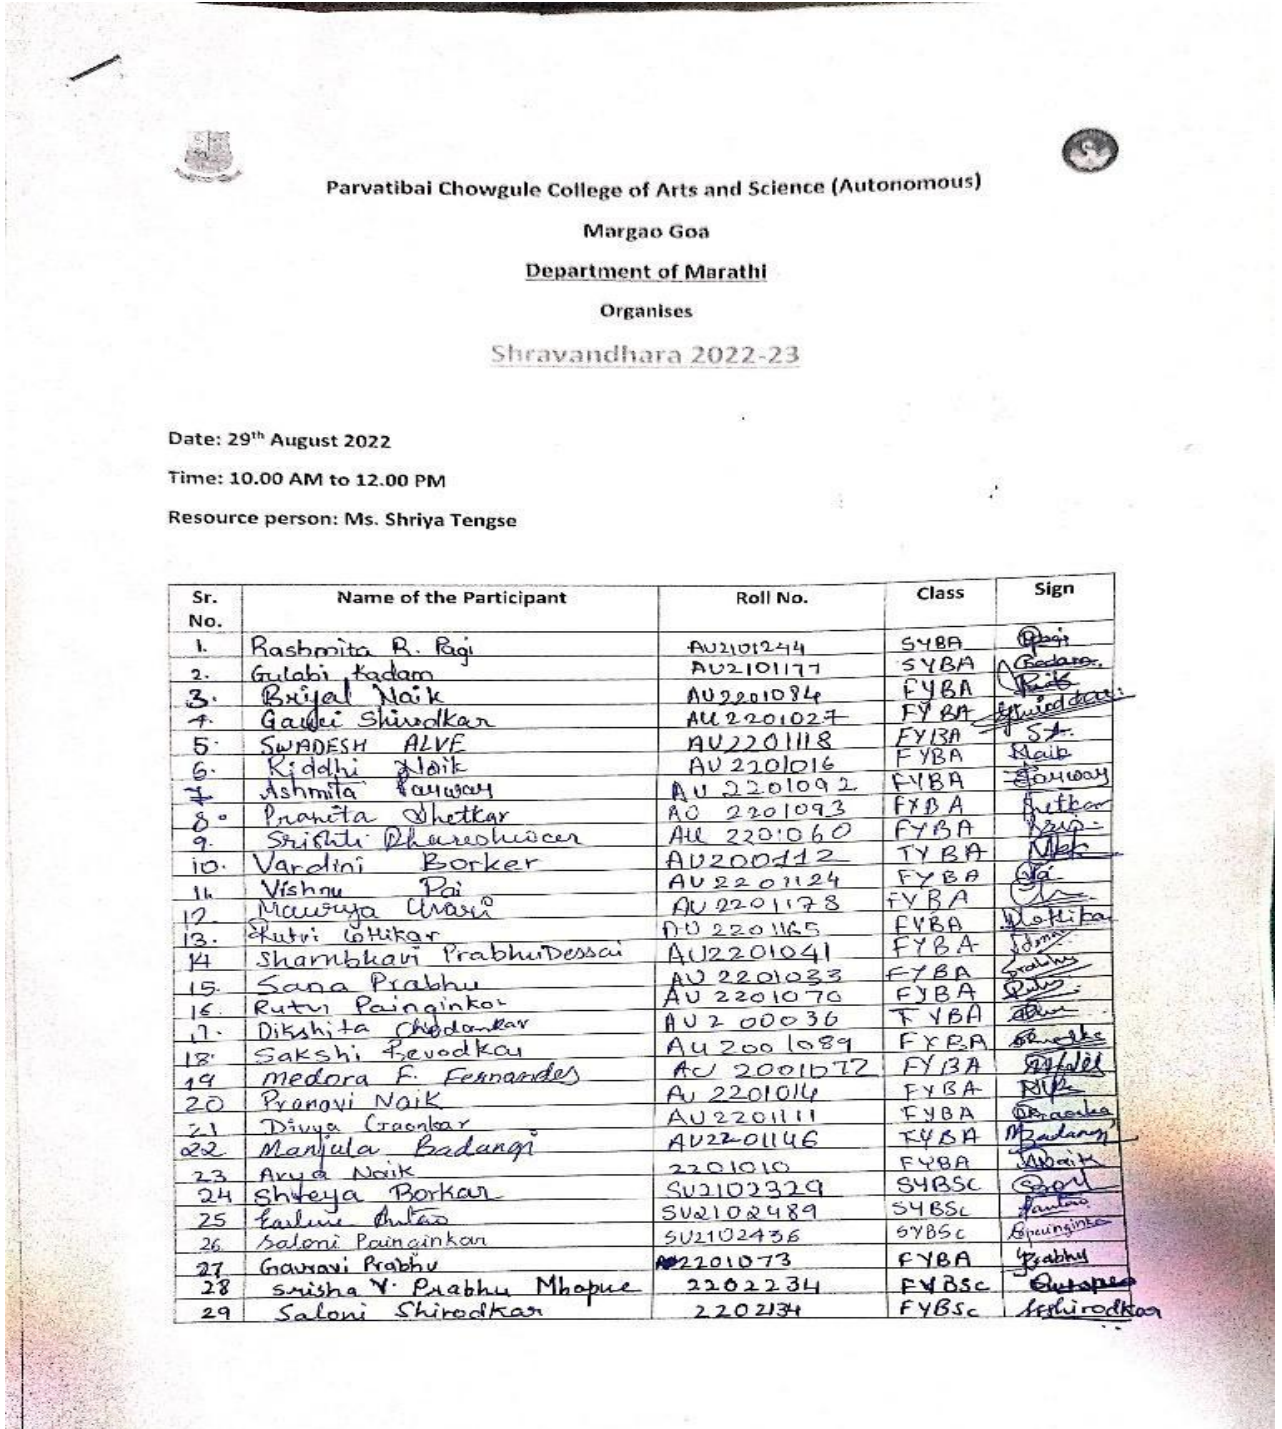 Parvatibai Chowgule College of Arts and Science (Autonomous)
Margao Goa
Department of Marathi
Organises
Shravandhara 2022-23
Date: 29th August 2022
Time: 10.00 AM to 12.00 PM
Resource person: Ms. Shriya Tengse
Sr. No. Name of the Participant Roll No. Class Sign
1. Rashmita R. Pagi AU2101244 SYBA
2. Gulabi Kadam AU2101177 SYBA
3. Brijal Naik AU2201084 FYBA
4. Gauri Shirodkar AU2201027 FYBA
5. SWADESH ALVE AU2201118 FYBA
6. Riddhi Naik AU2201016 FYBA Naik
7 Ashmita AU2201092 FYBA
8. Pranita Shetkar AU 2201093 FYBA Shetkar
9. Srishti Dhareshwar AU 2201060 FYBA
10. Vardini Borker AU200112 TYBA
11. Vishnu Pai AU2201124 FYBA
12. Maurya AU2201178 FYBA
13. Rutvi AU2201165 FYBA
14 Shambhavi PrabhuDessai AU2201041 FYBA
15. Sana Prabhu AU2201033 FYBA Prabhu
16. Rutvi Painginkar AU2201070 FYBA
17. Dikshita Chodankar AU200036 TYBA
18. Sakshi AU2001089 FYBA
19 Medora F. Fernandes FYBA
20 Pranavi Naik AU 2201014 FYBA
21 Divya Gaonkar AU2201111 FYBA
22 Manjula Badangi AU2201146 FYBA Badangi
23 Arya Naik 2201010 FYBA Naik
24 Shreya Borkar SU2102329 SYBSC
25 Antao SU2102489 SYBSc Antao
26. Saloni Painginkar SU2102436 SYBSc Spainginkar
27 Gauravi Prabhu 2201073 FYBA Prabhu
28 Srisha V. Prabhu Mhapne 2202234 FYBSc
29 Saloni Shirodkar 2202134 FYBSc Sshirodkar